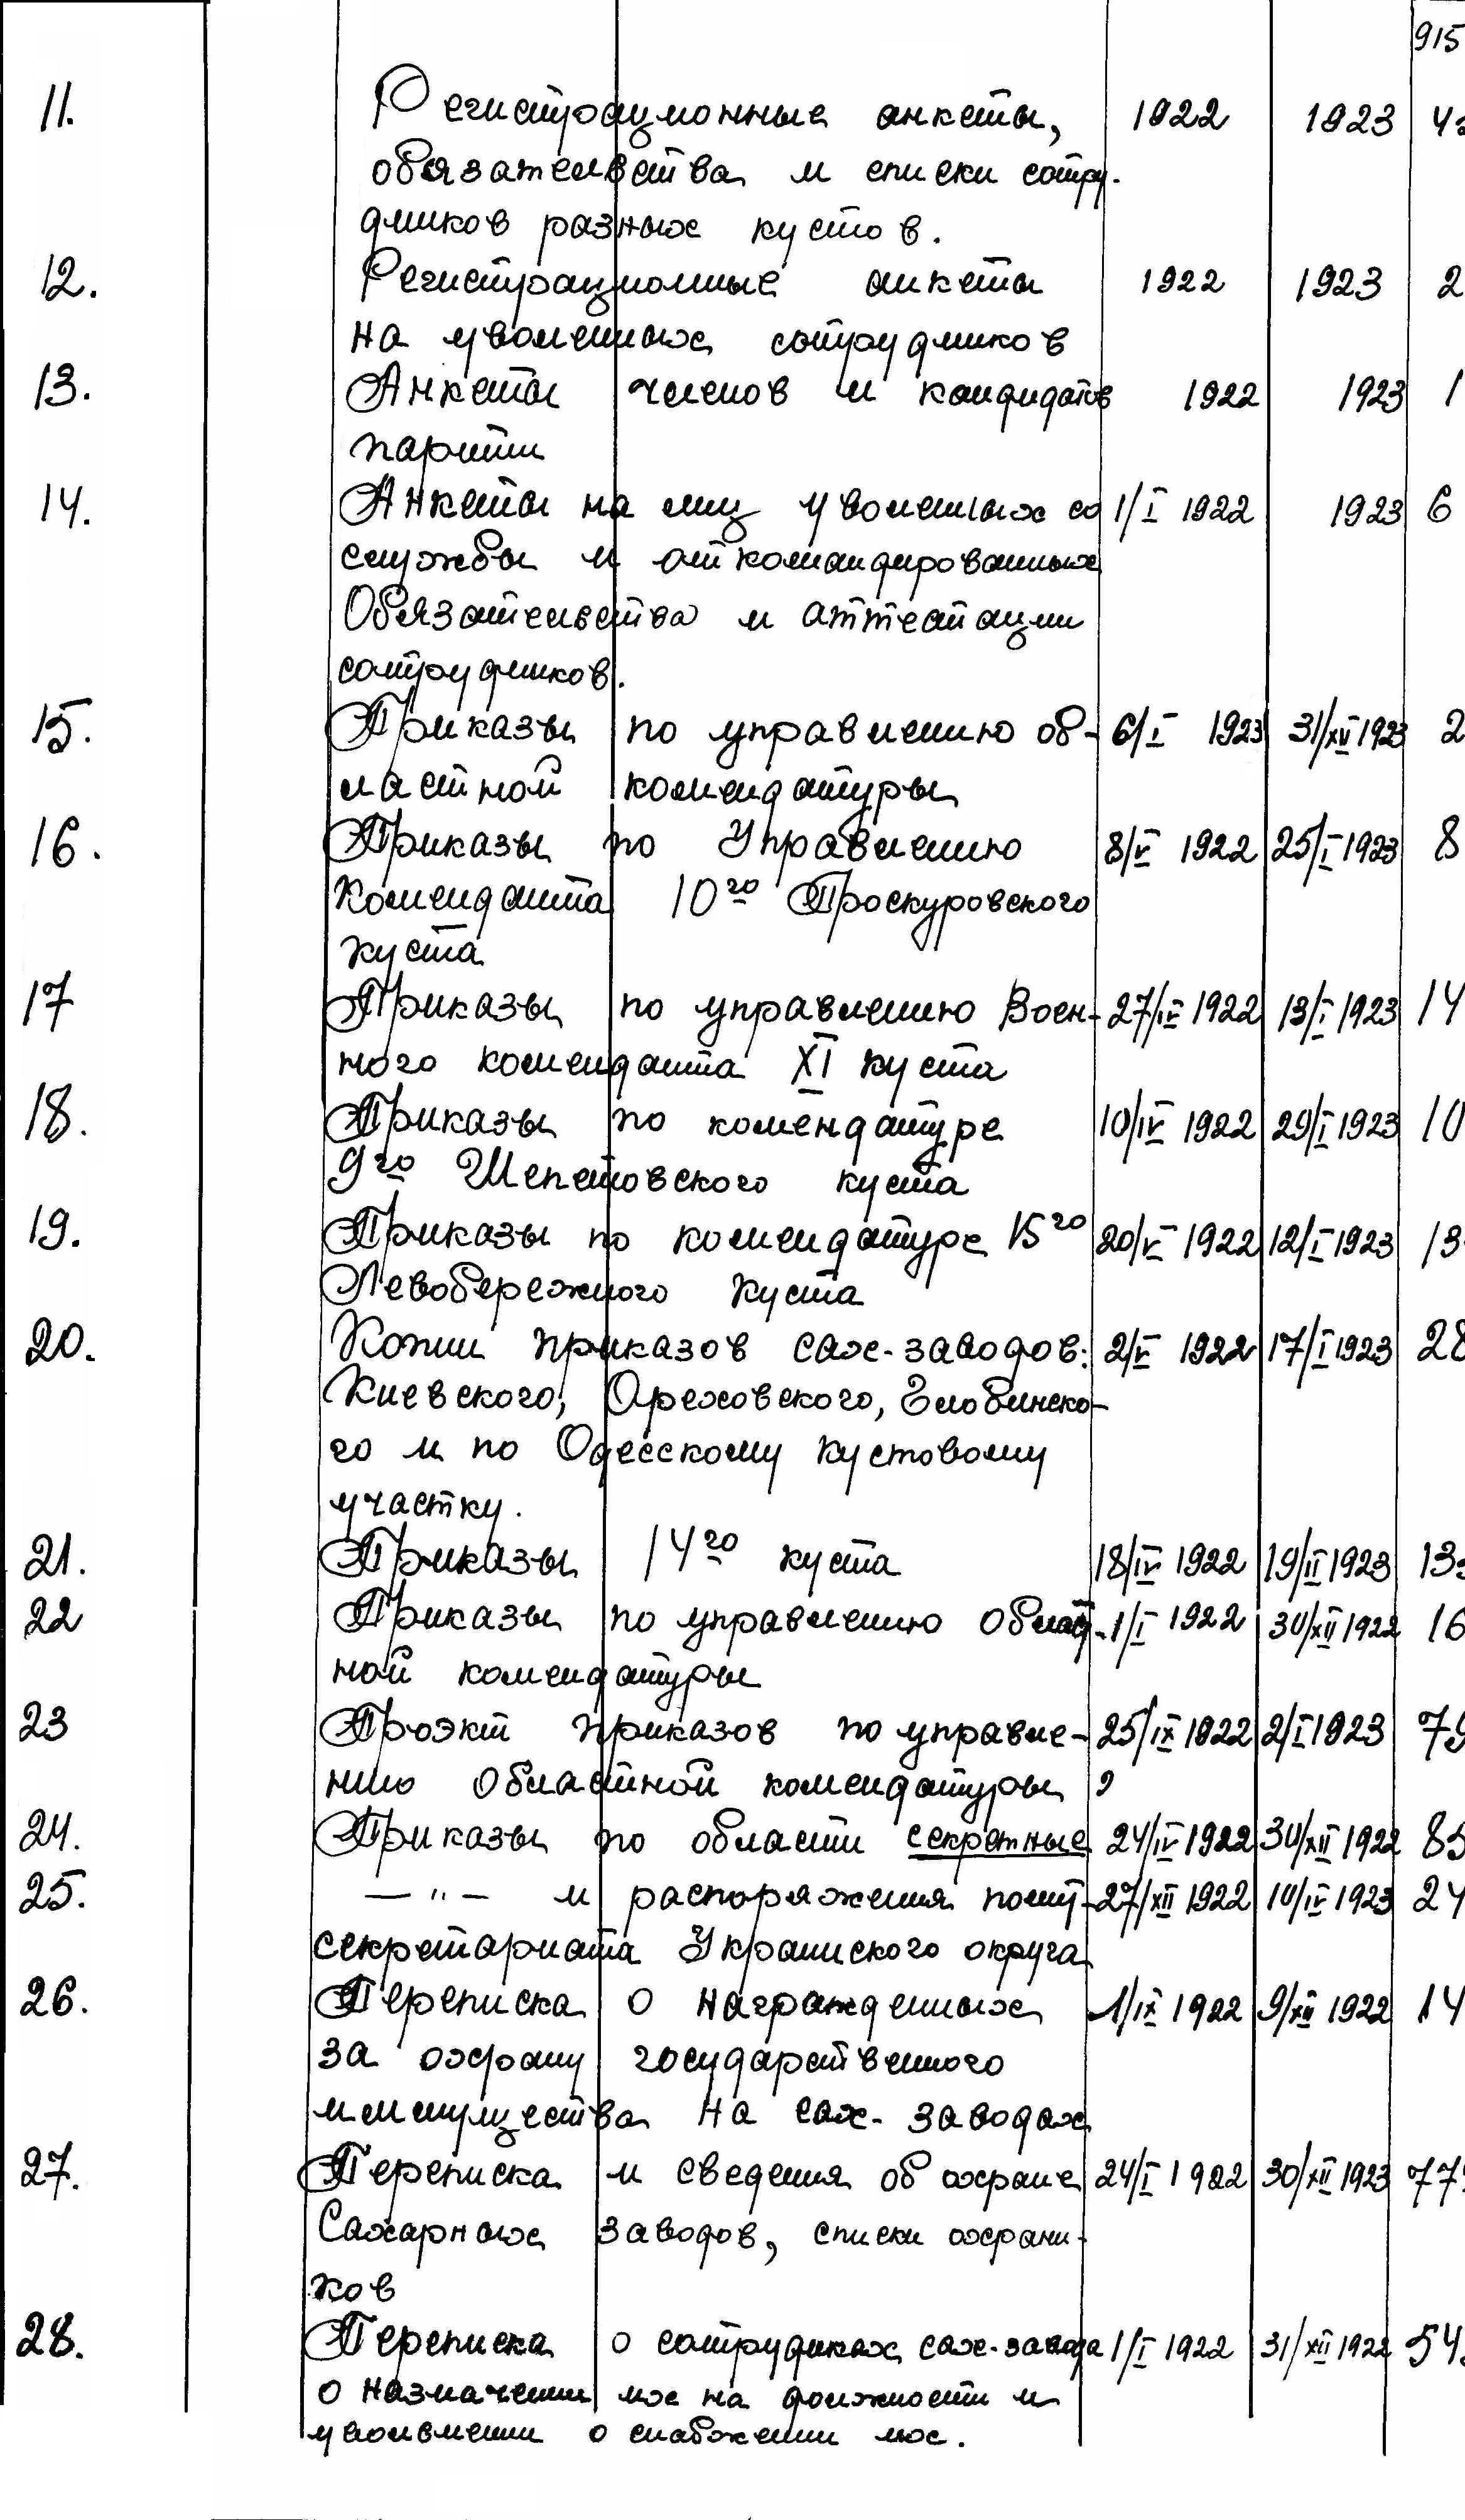 915
11. Регистрационные анкеты, 1922 1923
обязательства и списки сотру-
дников разных кустов.
12. Регистрационные анкеты 1922 1923 2
на уволенных сотрудников
13. Анкеты членов и кандидатов 1922 1923 1
партии
14. Анкеты на лиц уволенных со 1/I 1922 1923 6
службы и откомандированных
Обязательства и аттестации
сотрудников.
15. Приказы по управлению об- 6/I 1923 31/XII 1923 2
ластной комендатуры
16. Приказы по Управлению 8/V 1922 25/I 1923 8
Коменданта 10го Проскуровского
куста
17 Приказы по управлению Воен- 27/IV 1922 13/I 1923 14
ного коменданта XI куста
18. Приказы по комендатуре 10/IV 1922 29/I 1923 10
9го Шепетовского куста
19. Приказы по комендатуре 15го 20/V 1922 12/I 1923 13
Левобережного Куста
20. Копии приказов сах-заводов: 2/V 1922 17/I 1923 28
Киевского, Ореховского, Глобинско-
го и по Одесскому кустовому
участку.
21. Приказы 14го куста 18/IV 1922 19/II 1923 13
22 Приказы по управлению Област- 1/I 1922 30/XII 1922 16
ной комендатуры
23 Проэкт приказов по управле- 25/IX 1922 2/I 1923 79
нию Областной комендатуры
24. Приказы по области секретные 24/IV 1922 30/XII 1922
25. — " — и распоряжения полит- 27/XII 1922 10/IV 1923 24
секретариата Украинского округа
26. Переписка о награжденных 1/IX 1922 9/XII 1922 14
за охрану государственного
имущества на сах- заводах
27. Переписка и сведения об охране 24/I 1922 30/XII 1923 77
Сахарных заводов, списки охрани-
ков
28. Переписка о сотрудниках сах-завода 1/I 1922 31/XII 1922 54
о назначении их на должности и
увольнении о снабжении их.